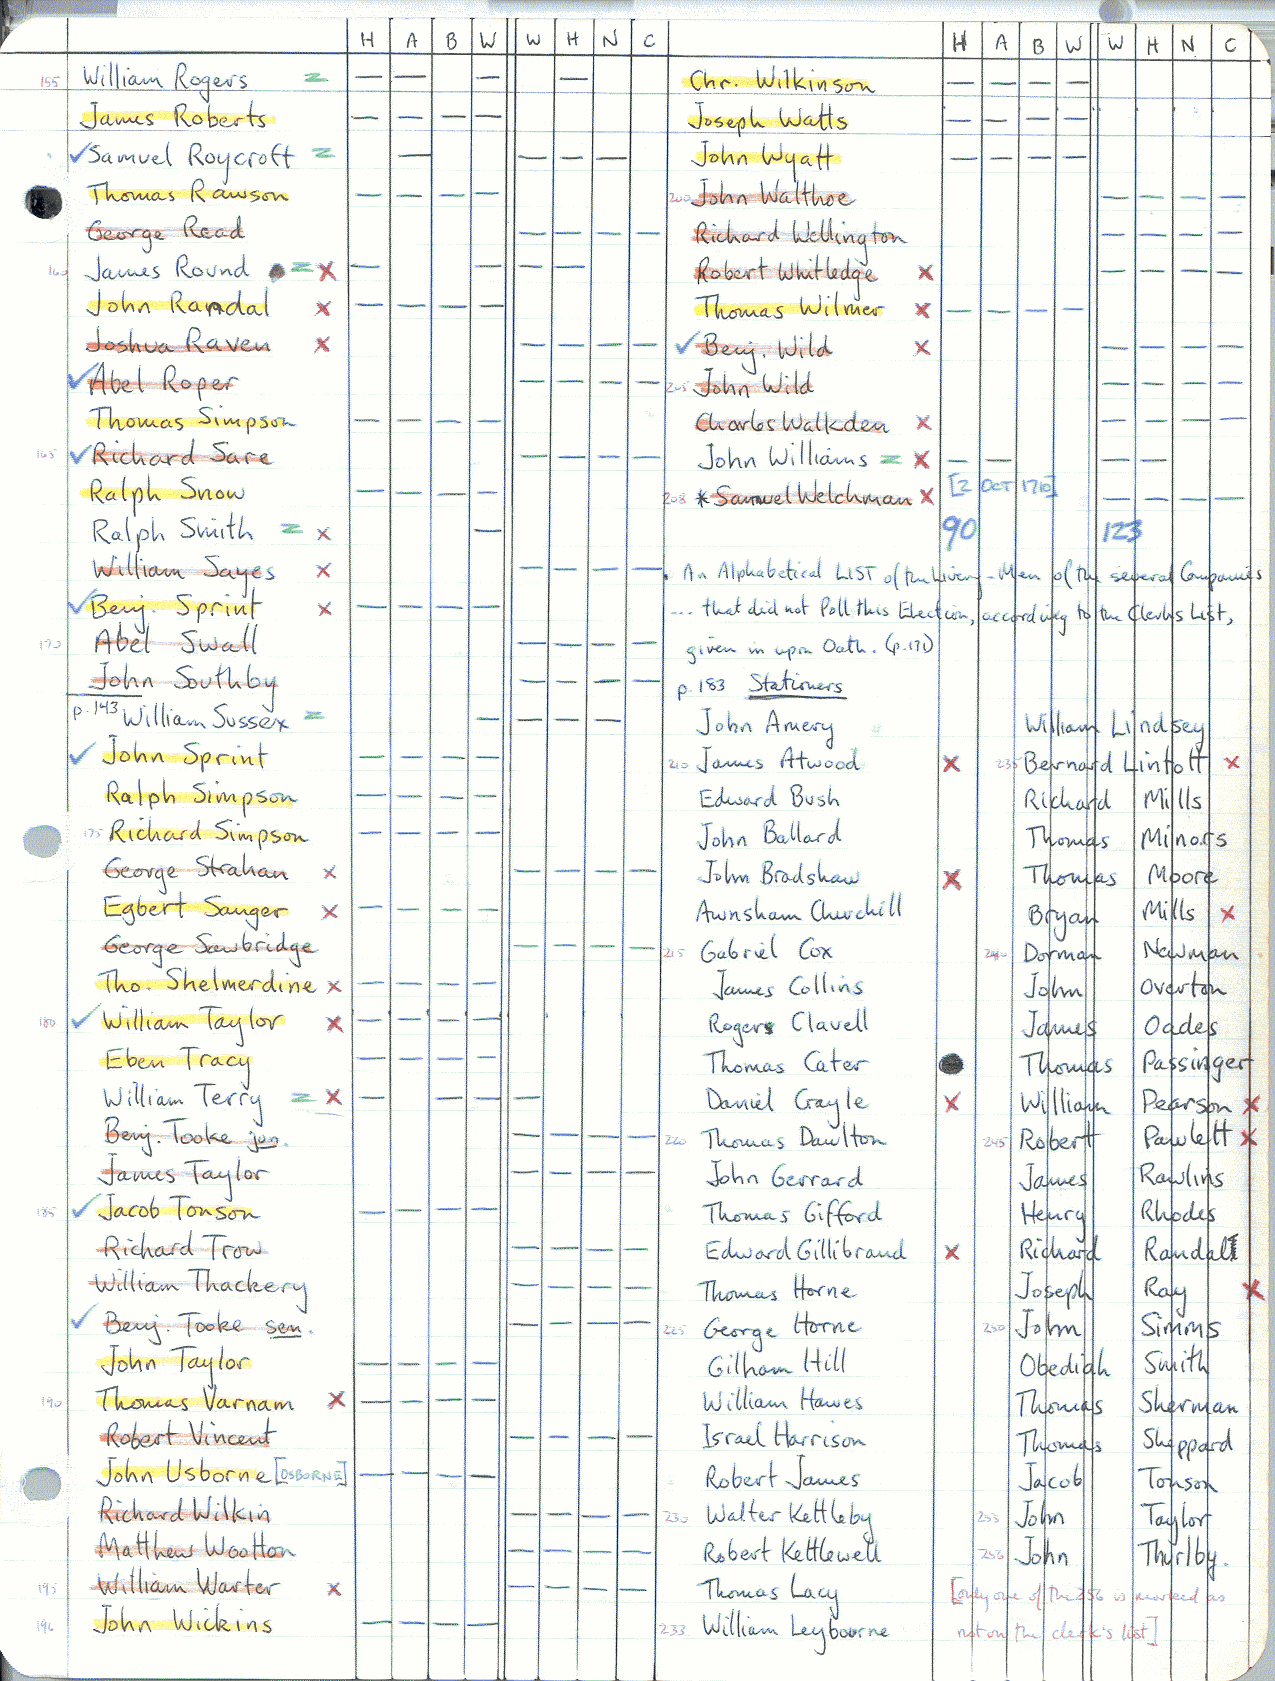 H A B W W H N C
155 William Rogers z — — — —
James Roberts — — — —
✓ Samuel Roycroft z — — — —
Thomas Rawson — — — —
George Read — — — —
160 James Round ● z x — — — —
John Randal x — — — —
Joshua Raven x — — — —
✓ Abel Roper — — — —
Thomas Simpson — — — —
165 ✓ Richard Sare — — — —
Ralph Snow — — — —
Ralph Smith z x —
William Sayes x — — — —
✓ Benj Sprint x — — — —
170 Abel Swall — — — —
John Southby — — — —
p.143 William Sussex z — — — —
✓ John Sprint — — — —
Ralph Simpson — — — —
175 Richard Simpson — — — —
George Strahan x — — — —
Egbert Sanger x — — — —
George Sawbridge — — — —
Tho. Shelmerdine x — — — —
180 ✓ William Taylor x — — — —
Eben Tracy — — — —
William Terry z x — — — —
Benj. Tooke jun. — — — —
James Taylor — — — —
185 ✓ Jacob Tonson — — — —
Richard Trow — — — —
William Thackery — — — —
✓ Benj. Tooke sen. — — — —
John Taylor — — — —
190 Thomas Varnam x — — — —
Robert Vincent — — — —
John Usborne [OSBORNE] — — — —
Richard Wilkin — — — —
Matthew Wootton — — — —
195 William Warter x — — — —
196 John Wickins — — — —
H A B W W H N C
Chr. Wilkinson — — — —
Joseph Watts — — — —
John Wyatt — — — —
200 John Walthoe — — — —
Richard Wellington — — — —
Robert Whitledge x — — — —
Thomas Wilmer x — — — —
✓ Benj. Wild x — — — —
205 John Wild — — — —
Charles Walkden x — — — —
John Williams z x — — — —
208 * Samuel Welchman x [2 OCT 1710] — — — —
90 123
An Alphabetical LIST of the Livery-Men of the several Companies
... that did not Poll this Election, according to the Clerks List,
given in upon Oath. (p.171)
p.183 Stationers
John Amery
210 James Atwood x
Edward Bush
John Ballard
John Bradshaw x
Awnsham Churchill
215 Gabriel Cox
James Collins
Roger Clavell
Thomas Cater ●
Daniel Crayle x
220 Thomas Dawlton
John Gerrard
Thomas Gifford
Edward Gillibrand x
Thomas Horne
225 George Horne
Gilham Hill
William Hawes
Israel Harrison
Robert James
230 Walter Kettleby
Robert Kettlewell
Thomas Lacy
233 William Leybourne
William Lindsey
235 Bernard Lintott x
Richard Mills
Thomas Minors
Thomas Moore
Bryan Mills x
240 Dorman Newman
John Overton
James Oades
Thomas Passinger
William Pearson x
245 Robert Pawlett x
James Rawlins
Henry Rhodes
Richard Randall
Joseph Ray x
250 John Simms
Obediah Smith
Thomas Sherman
Thomas Sheppard
Jacob Tonson
255 John Taylor
256 John Thurlby.
[only one of the 256 is marked as
not on the clerk's list]